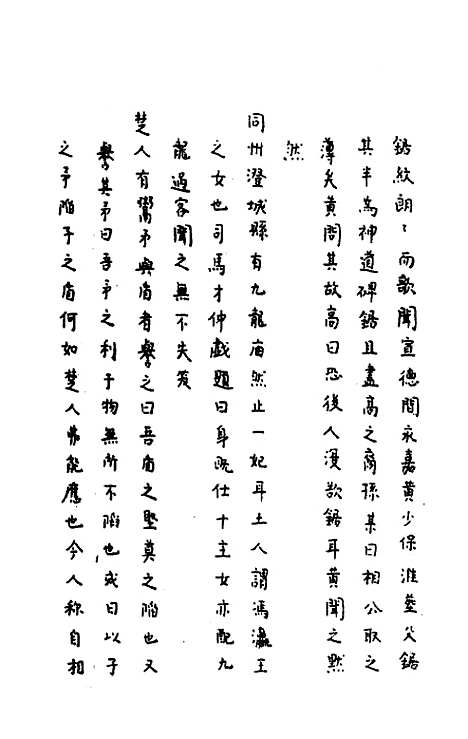 鋸紋朗〻而歌聞宣德間永嘉黃少保淮葬父鋸
其半為神道碑鋸且盡高之裔孫某曰相公取之
薄矣黃問其故高曰恐後人漫欲鋸耳黃聞之默
然
同州澄城縣有九龍庙然止一妃耳土人謂馮瀛王
之女也司馬才仲戲題曰身既仕十主女亦配九
龍過客聞之無不失笑
楚人有鬻矛與盾者譽之曰吾盾之堅莫之陷也又
譽其矛曰吾矛之利于物無所不陷也或曰以子
之矛陷子之盾何如楚人弗能應也今人称自相